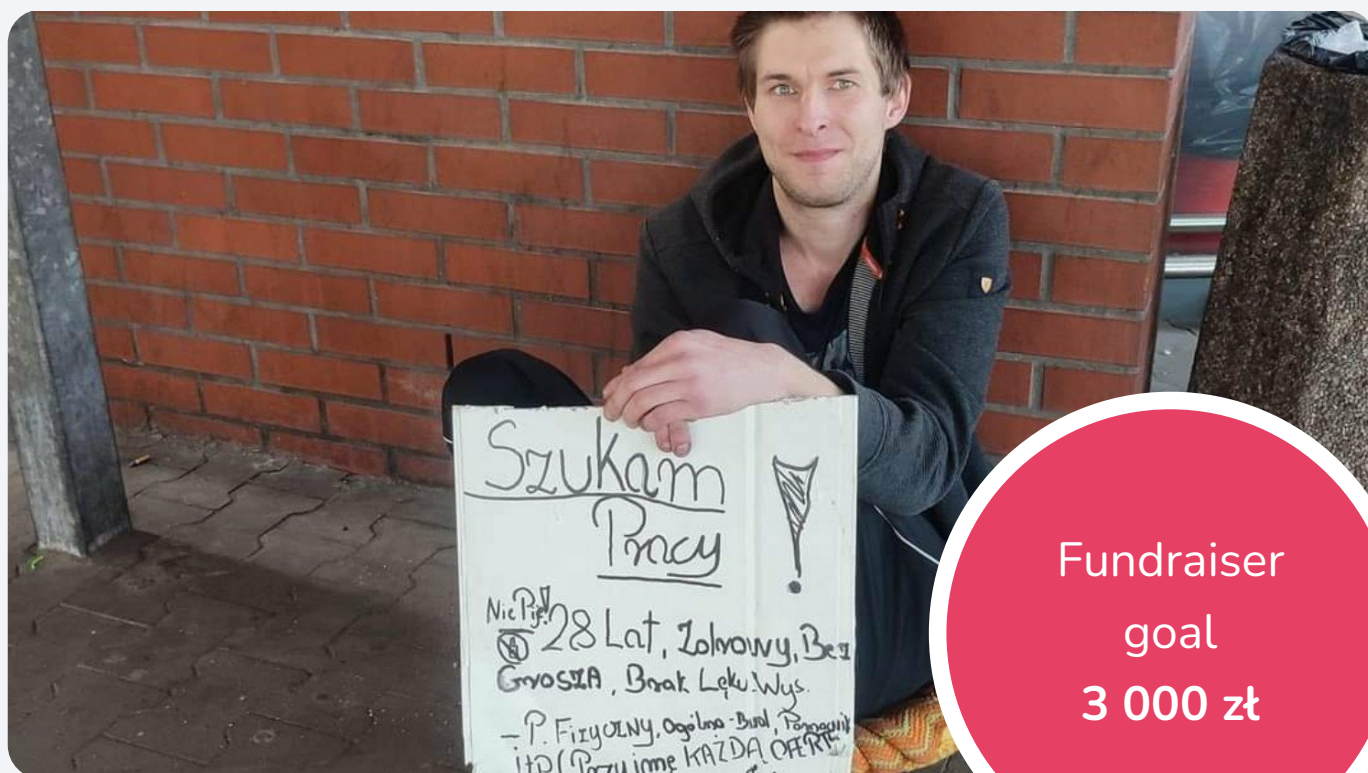 Szukam
Pracy !
Nie Piję!
28 Lat, Zdrowy, Bez
GroszA, Brak Lęku. Wys.
- P. FizyczNY, Ogólno-Bud, Pomocnik
itp (Przyjmę KAŻDĄ OFERTĘ
Fundraiser
goal
3 000 zł